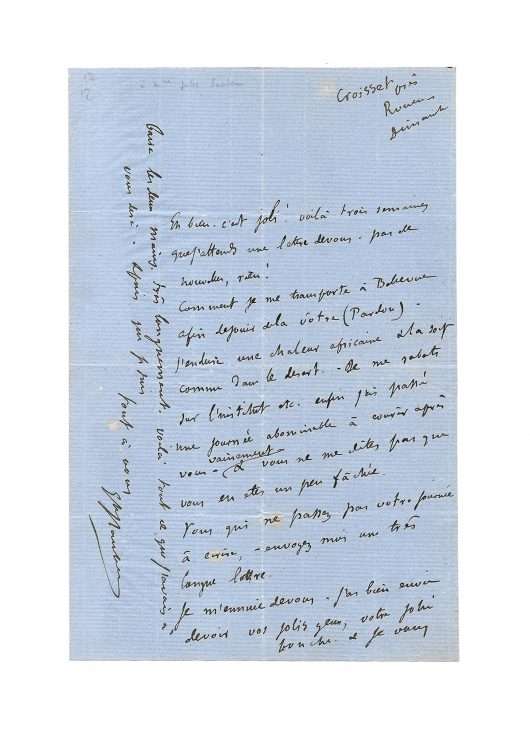 Croisset près
Rouen
Dimanche
Eh bien. c'est joli! voilà trois semaines
que j'attends une lettre de vous - pas de
nouvelles, rien!
Comment je me transporte à Bellevue
afin de jouir de la vôtre (Pardon) -
j'endure une chaleur africaine & la soif
comme dans le desert. - Je me rabats
sur l'institut etc. enfin j'ai passé
une journée abominable à courir après
vous - vainement & vous ne me dites pas que
vous en êtes un peu fâchée.
Vous qui ne passez pas votre journée
à écrire, - envoyez moi une très
longue lettre.
Je m'ennuie de vous - j'ai bien envie
de voir vos jolis yeux, votre jolie
bouche. & Je vous
baise les deux mains. très longuement. voilà tout ce que j'avais à
vous dire -
tout à vous
Gve Flaubert